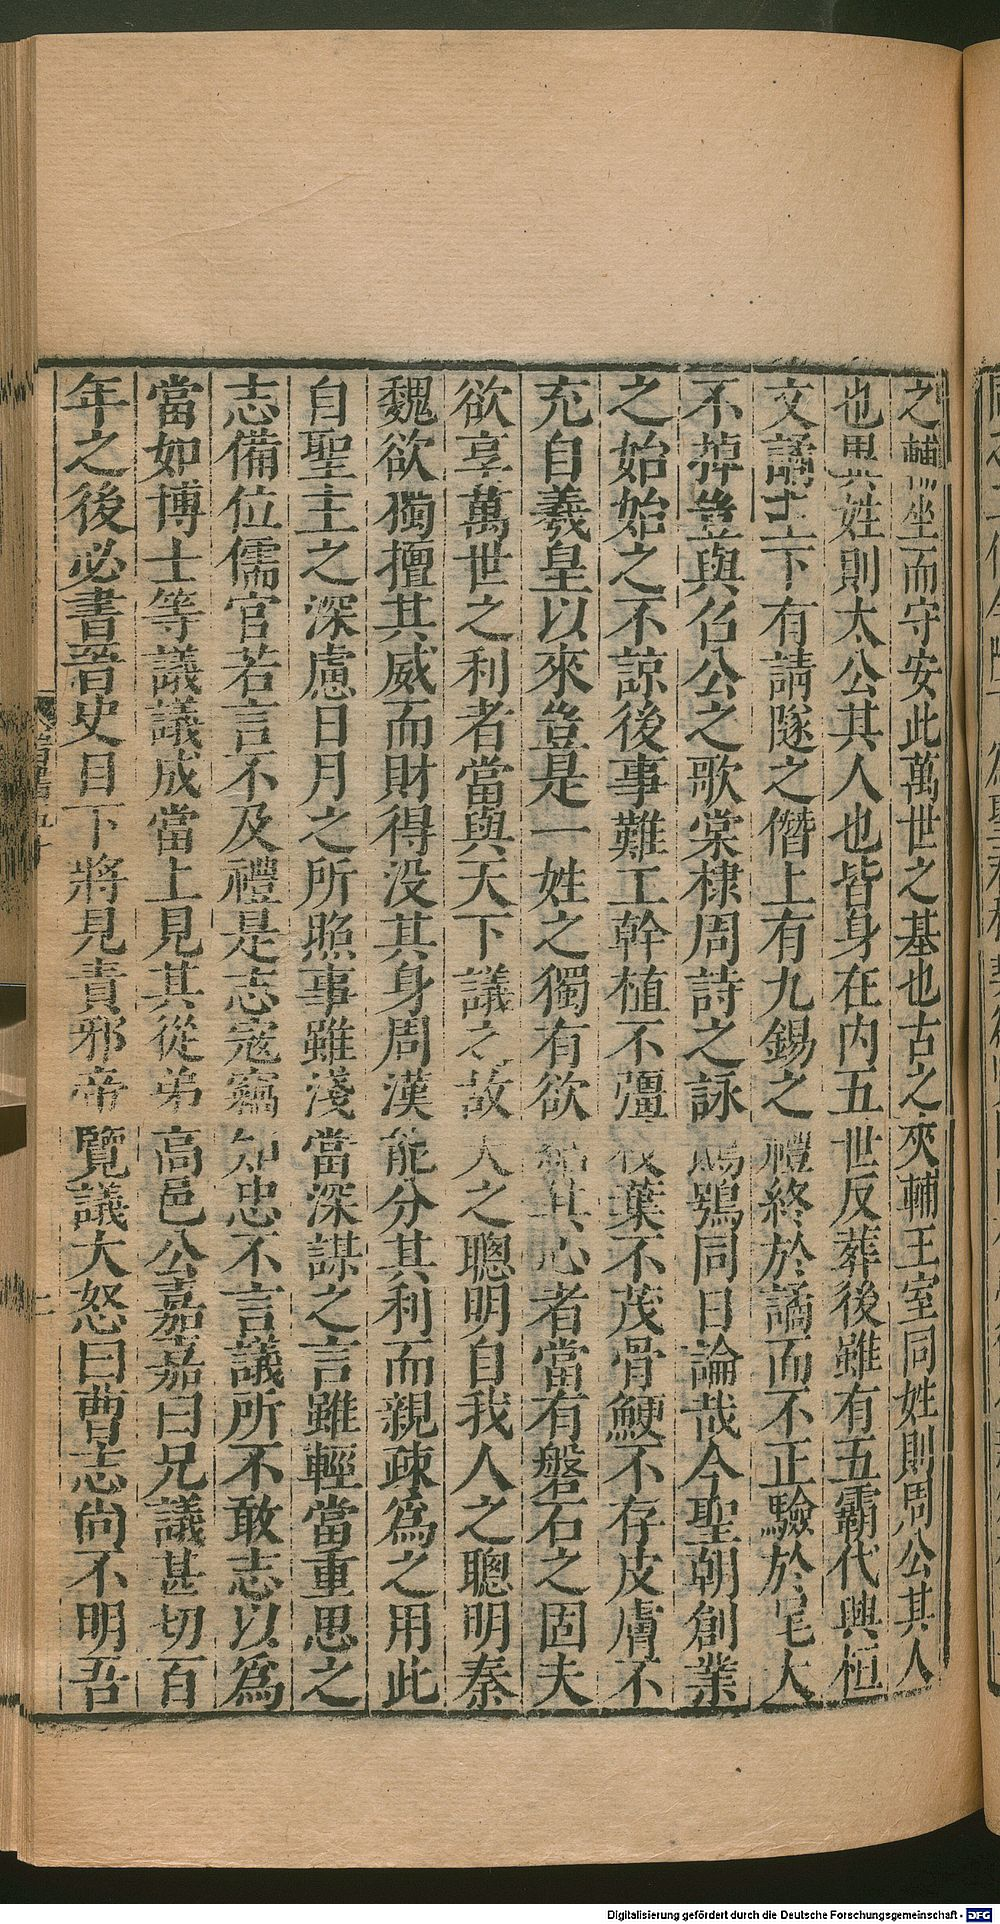 之輔坐而守安此萬世之基也古之夾輔王室同姓則周公其人
也異姓則太公其人也皆身在內五世反葬後雖有五霸代興桓
文譎主下有請隧之僭上有九錫之禮終於譎而不正驗於尾大
不掉豈與召公之歌棠棣周詩之詠鴟鴞同日論哉今聖朝創業
之始始之不諒後事難工幹植不彊枝葉不茂骨鯁不存皮膚不
充自羲皇以來豈是一姓之獨有欲結其心者當有磐石之固夫
欲享萬世之利者當與天下議之故天之聰明自我人之聰明秦
魏欲獨擅其威而財得没其身周漢能分其利而親疎為之用此
自聖主之深慮日月之所照事雖淺當深謀之言雖輕當重思之
志備位儒官若言不及禮是志寇竊知忠不言議所不敢志以為
當如博士等議議成當上見其從弟高邑公嘉嘉曰兄議甚切百
年之後必書晉史目下將見責邪帝覽議大怒曰曹志尚不明吾
晉書五十
二
Digitalisierung gefördert durch die Deutsche Forschungsgemeinschaft - DFG